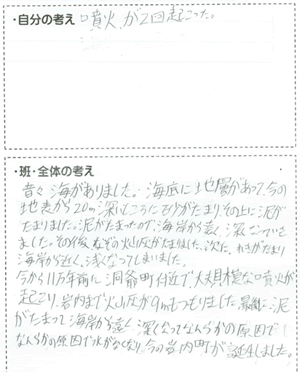 ・自分の考え 噴火が2回起こった。
・班・全体の考え
昔々海がありました。海底に地層があって、今の
地表から20m深いところにそりがたまり、その上に泥が
たまりました。泥がたまったので海岸から遠く深くなっていき
ました。その後、火山灰がたまりました。次に、れきがたまり
海岸が近く、浅くなってしまいました。
今から11万年前に洞爺町付近で大規模な噴火が
起こり、岩内まで火山灰が9mもつもりました。最後に泥
がたまって海岸から遠く深くなってなんらかの原因で
なんらかの原因で水がなくなり、今の岩内町が誕生しました。